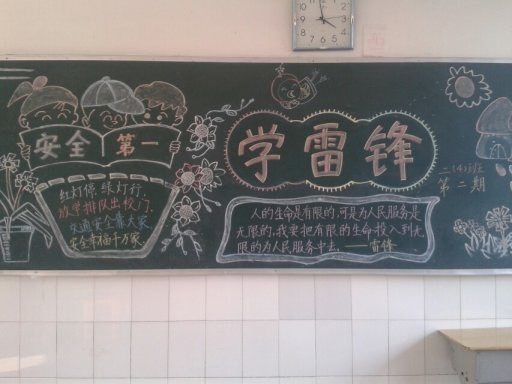 安全第一
红灯停 绿灯行,
放学排队出校门,
交通安全靠大家,
安全幸福十万家.
学雷锋
二(4)班
第二期
人的生命是有限的,可是为人民服务是
无限的,我要把有限的生命投入到无
限的为人民服务中去。——雷锋